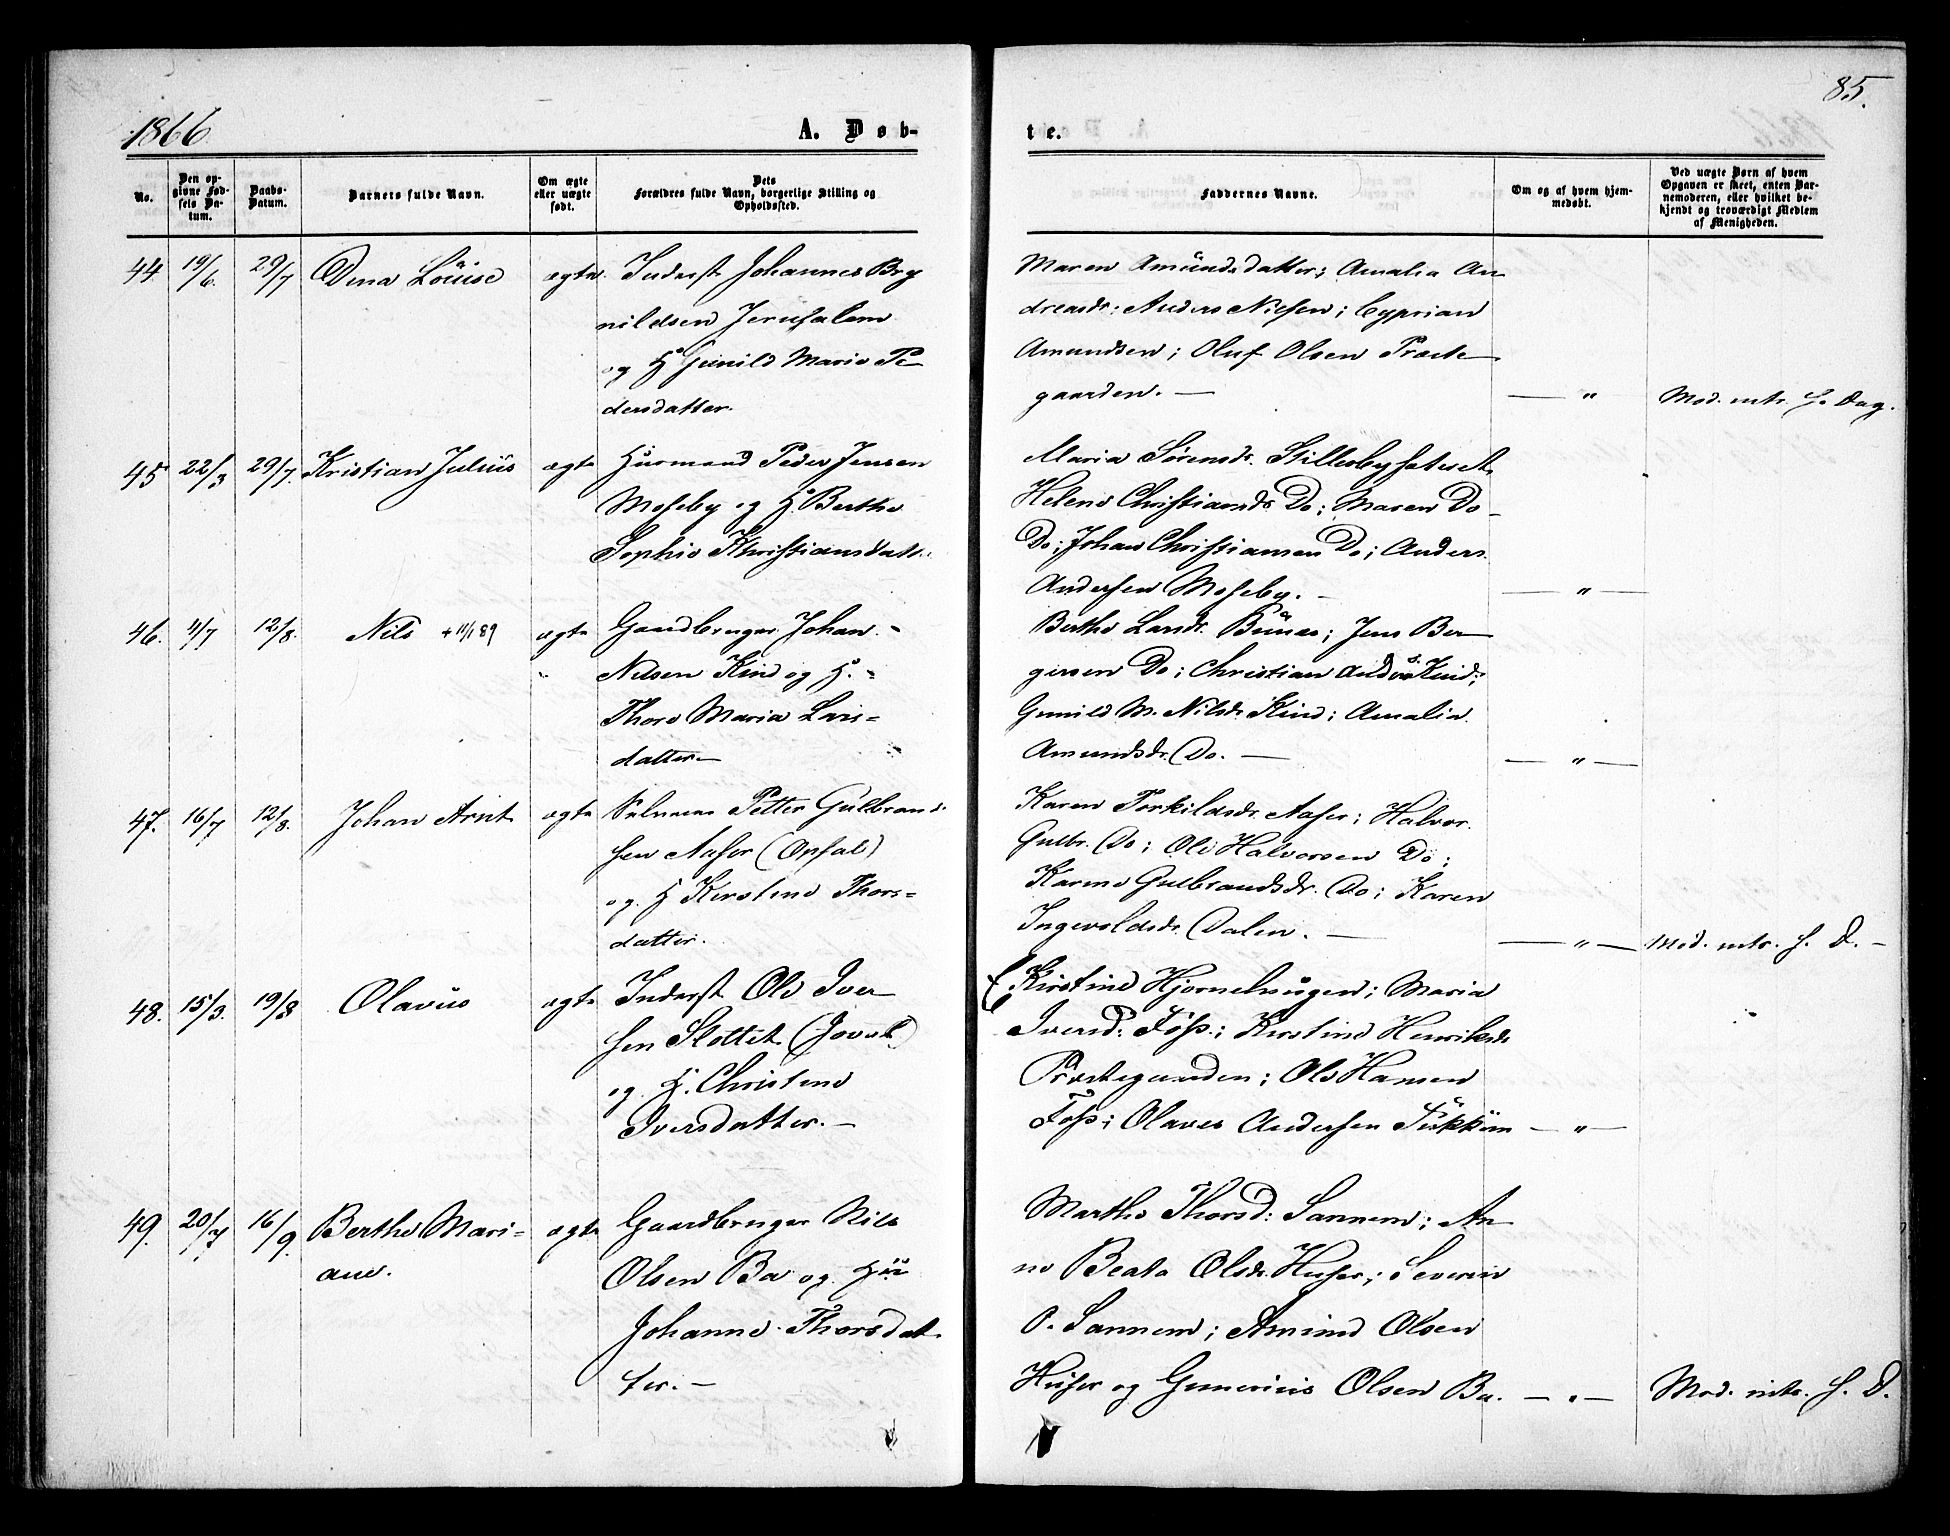 85.
1866
A. Døb-
te.
No.
Den opgivne Fødsels Datum.
Daabs-Datum.
Barnets fulde Navn.
Om ægte eller uægte født.
Dets Forældres fulde Navn, borgerlige Stilling og Opholdssted.
Faddernes Navne.
Om og af hvem hjemmedøbt.
Ved uægte Børn af hvem Opgaven er skeet, enten Barnemoderen, eller hvilket bekjendt og troværdigt Medlem af Menigheden.
44 19/6. 29/7 Dina Louise ægte Inderst Johannes Bry
nildsen Jerusalem
og H Gunild Marie Pe
dersdatter.
Maren Amundsdatter; Amalia An
dreasdr: Anders Nielsen; Cyprian
Amundsen; Oluf Olsen Præste
gaarden. —
— " Mod. intr. s. Dag.
45 22/3 29/7. Kristian Julius ægte Huusmand Peder Jensen
Moseby og H. Berthe
Sophie Khristiansdatt.
Maria Sørensdr. Stillerbysæteret.
Helene Christiansdr Do; Maren Do
Do; Johan Christiansen Do; Anders
Andersen Moseby. —
— " —
46. 11/7 12/8. Nils +11/1 89 ægte Gaardbruger Johan
Nilsen Kind og H.
Thore Maria Lars=
datter —
Berthe Larsdr. Bünæs; Jens Ber
gersen Do; Christian Kind;
Gunild M. Nilsdr Kind; Amalia
Amundsdr. Do. —
— " —
47. 16/7 12/8. Johan Arnt ægte Selveier Petter Gulbrand
sen Aaser (Opsal)
og. H Kirstine Thors=
datter.
Karen Torkildsdr. Aaser; Halvor
Gulbr. Do; Ole Halvorsen Do;
Karine Gulbrandsdr. Do; Karen
Ingevoldsdr. Dalen. —
— " — Mod. intr. s. D. —
48. 15/3. 19/8 Olavus ægte Inderst Ole Iver
sen Slottet
og H. Christine
Iversdatter. —
Kirstine Hjornehougen; Maria
Iversd: Foss; Kirstine Henriksdr
Præstegaarden; Ole Hansen
Foss; Olaves Andersen
— " —
49. 20/7 16/9. Berthe Mari=
ane.
ægte Gaardbruger Nils
Olsen Ba og Hu
Johanne Thorsdat
ter. —
Marthe Thorsd: Sannem; An
ne Beate Olsdr. Huser; Severin
O. Sannem; Amund Olsen
Huser og Gunerius Olsen Ba. — " — Mod. intr. s. D.